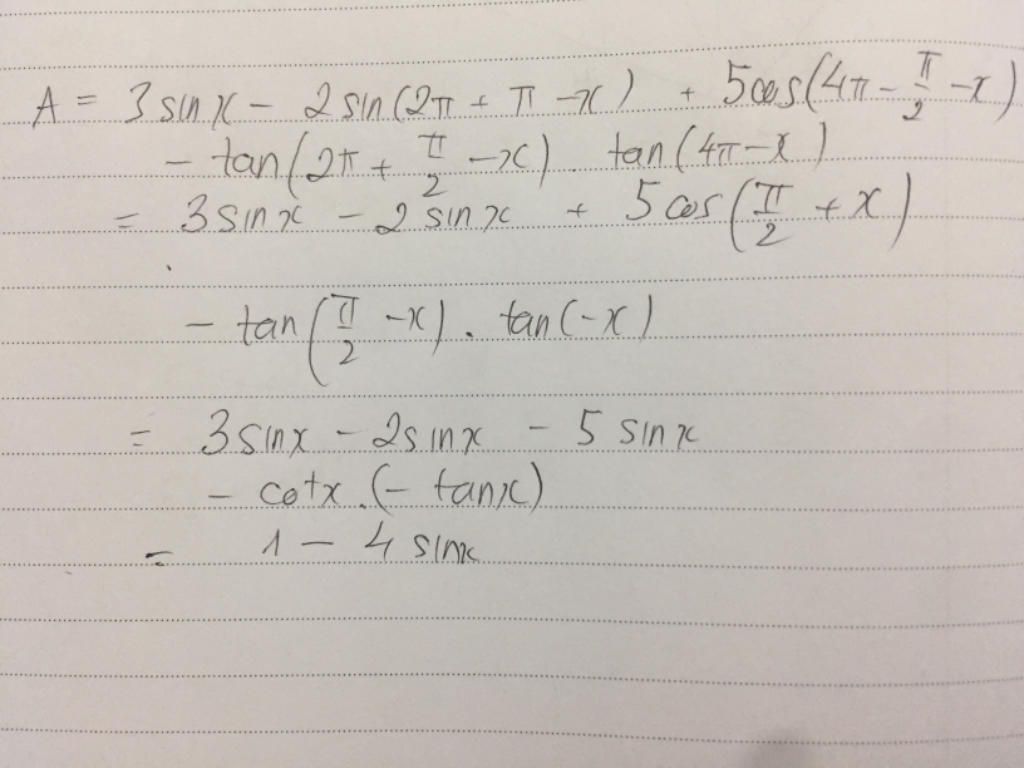 A = 3 sinx - 2 sin(2π + π - x) + 5cos(4π - π/2 - x)
- tan(2π + π/2 - x) . tan(4π - x)
= 3 sinx - 2 sinx + 5 cos(π/2 + x)
- tan(π/2 - x) . tan(-x)
= 3 sinx - 2sinx - 5 sinx
- cotx .(- tanx)
= 1 - 4 sinx